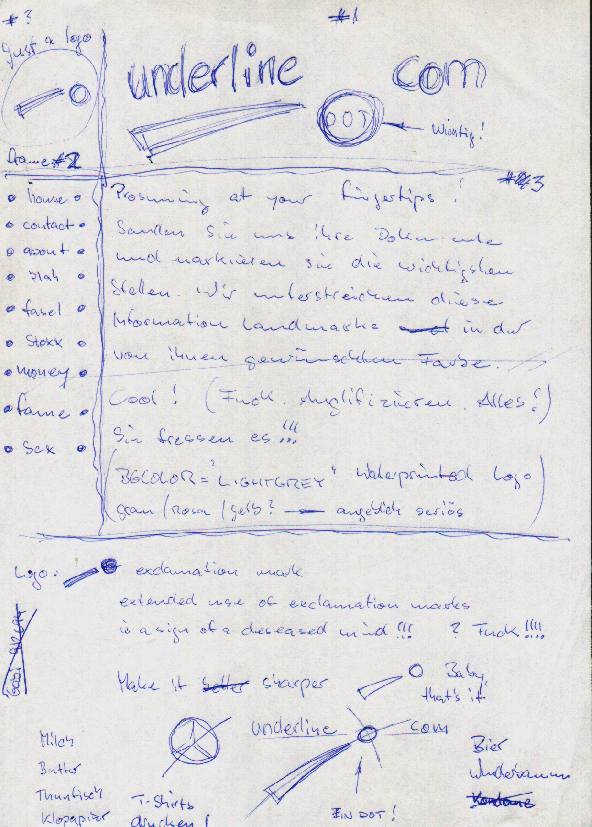 #3
#1
just a logo
underline DOT com
Wichtig!
frame #2
#3
• home •
• contact •
• about •
• blah •
• fasel •
• Stoxx •
• money •
• fame •
• sex •
at your fingertips!
Senden Sie uns ihre Dokumente
und markieren sie die wichtigsten
Stellen. Wir unterstreichen diese
Information Landmarks in der
von ihnen gewünschten Farbe.
Cool! (Fuck. Anglifizieren. Alles!)
Sie fressen es!!!
(BGCOLOR="LIGHTGREY" Waterprinted Logo
grau/rosa/gelb? angeblich seriös)
Logo: exclamation mark
extended use of exclamation marks
is a sign of a deseased mind!!! ? Fuck!!!!
Make it better sharper
Baby,
that's it
underline com
EIN DOT!
T-Shirts
drucken!
Milch
Butter
Thunfisch
Klopapier
Bier
Kondome